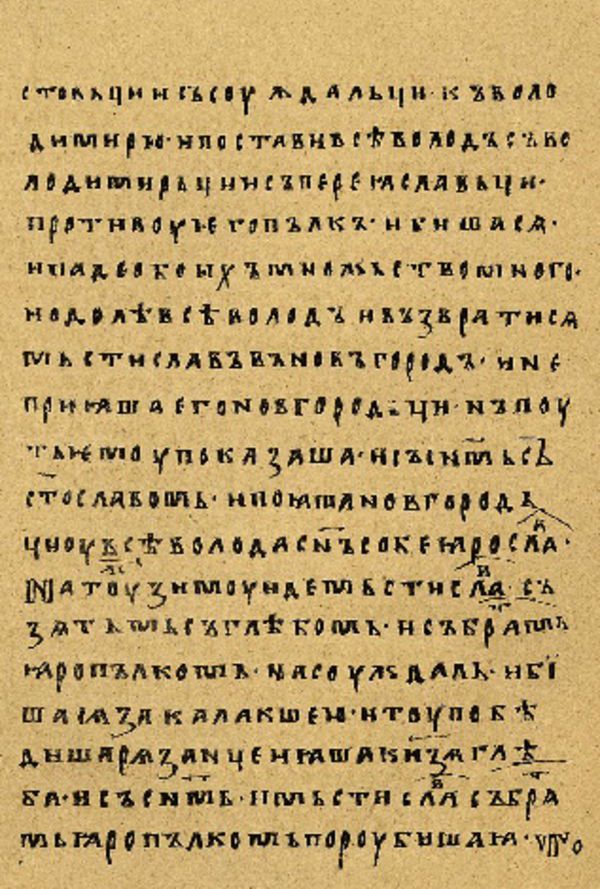 стовьци и съ соуждальци · къ воло
димирю · и постави всѣволодъ съ во
лодимирьци и съ переꙗславьци ·
противоу ѥго пълкъ · и бишасѧ ·
и паде обоихъ множьство много ·
и одолѣ всѣволодъ и възвратисѧ
мьстиславъ въ новъгородъ · и не
приꙗша его новгородьци · нъ поу
ть ѥмоу показаша · и съ сн҃мь съ
стославомь · и поꙗша новгородь
ци оу всѣволода сн҃ъ собе ꙗросла ·
На тоу зимоу иде мьстисла · съ
зѧтьмь съ глѣбомь · и съ братмь
ꙗропълкомь · на соуждаль · и бі
шасѧ за калакшею · и тоу побѣ
диша рѧзанци и ꙗша кнѧзѧ глѣ
ба · и съ сн҃мь · и мьстисла съ бра
мь ꙗропълкомь пороубиша ꙗ ·